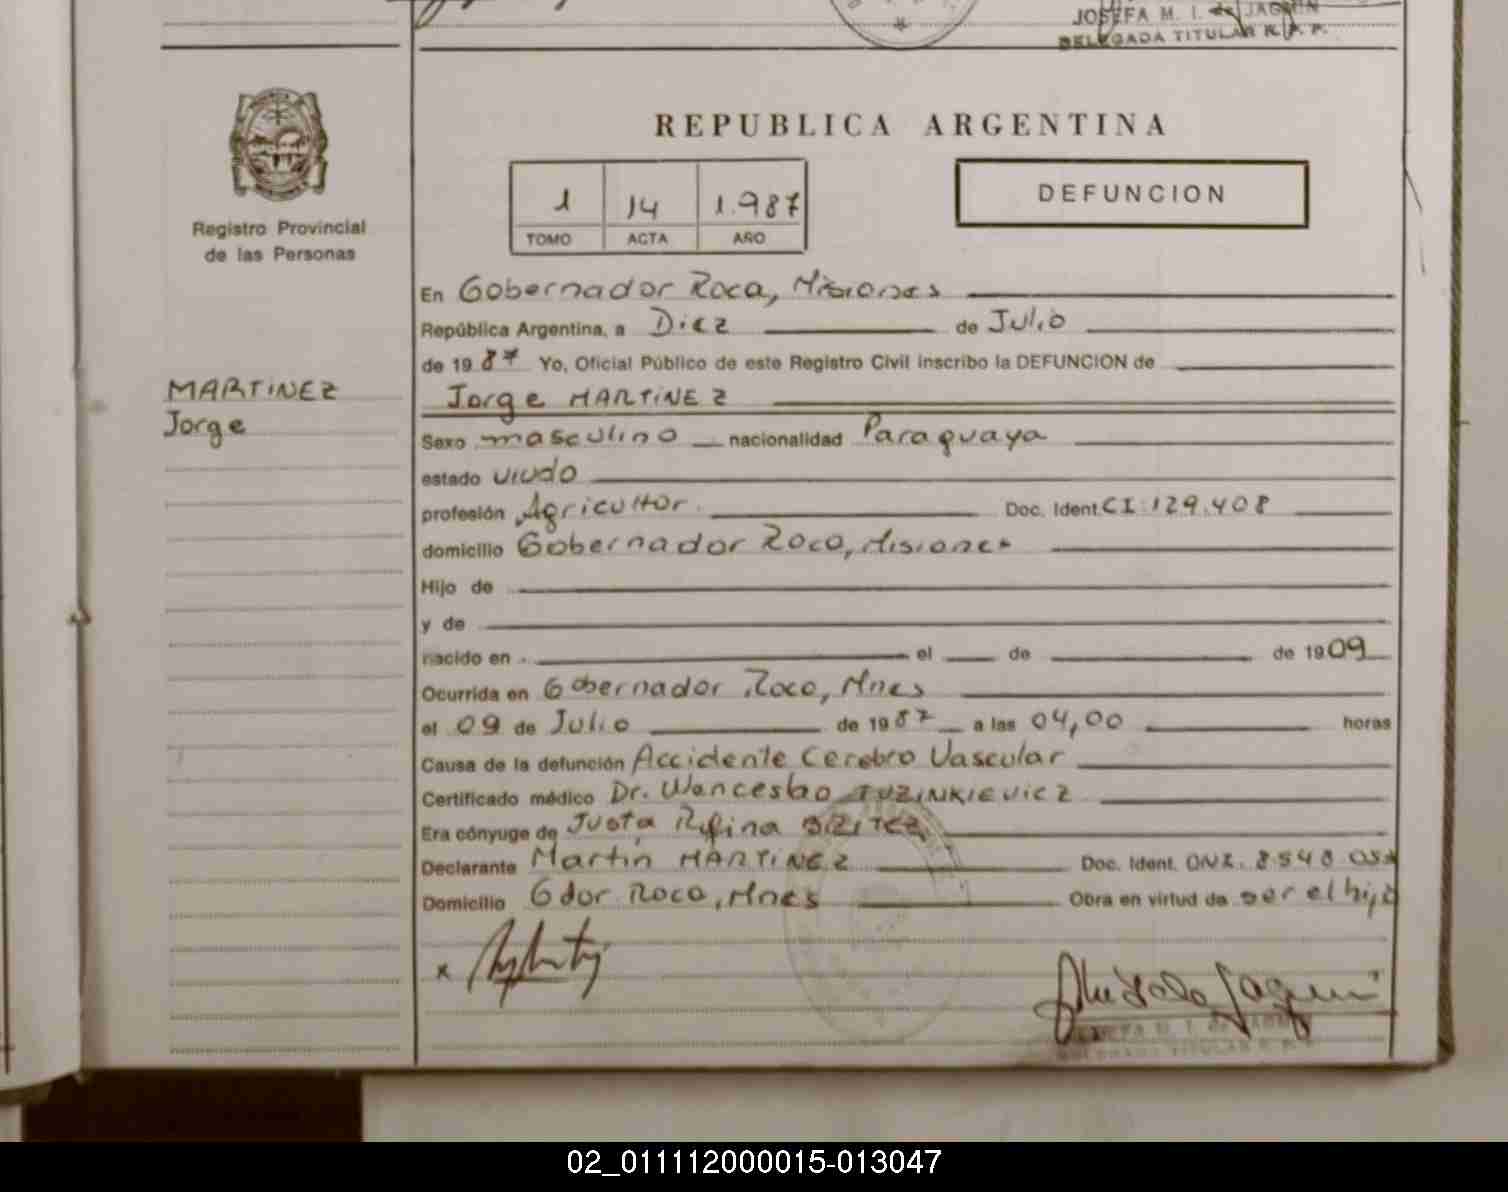 JOSEFA M. I. de JAGMIN
DELEGADA TITULAR R. P. P.
REPUBLICA ARGENTINA
Registro Provincial
de las Personas
1 14 1.987
TOMO ACTA AÑO
DEFUNCION
En Gobernador Roca, Misiones
República Argentina, a Diez de Julio
de 1987 Yo, Oficial Público de este Registro Civil inscribo la DEFUNCION de
MARTINEZ
Jorge
Jorge MARTINEZ
Sexo masculino nacionalidad Paraguaya
estado viudo
profesión Agricultor. Doc. Ident. CI: 129.408
domicilio Gobernador Roca, Misiones
Hijo de
y de
nacido en el de de 1909
Ocurrida en Gobernador Roca, Mnes
el 09 de Julio de 1987 a las 04,00 horas
Causa de la defunción Accidente Cerebro Vascular
Certificado médico Dr. Wenceslao TUZINKIEVICZ
Era cónyuge de Justa Rufina BRITEZ
Declarante Martín MARTINEZ Doc. Ident. DNI. 8.548.05
Domicilio Gdor. Roca, Mnes Obra en virtud de ser el hijo
x
JOSEFA M. I. de JAGMIN
DELEGADA TITULAR R. P. P.
02_011112000015-013047